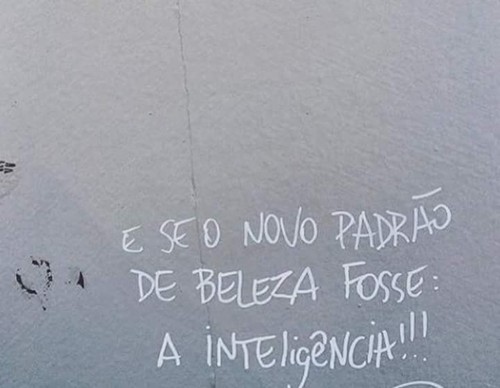 E SE O NOVO PADRÃO
DE BELEZA FOSSE:
A INTEligêNCIA!!!